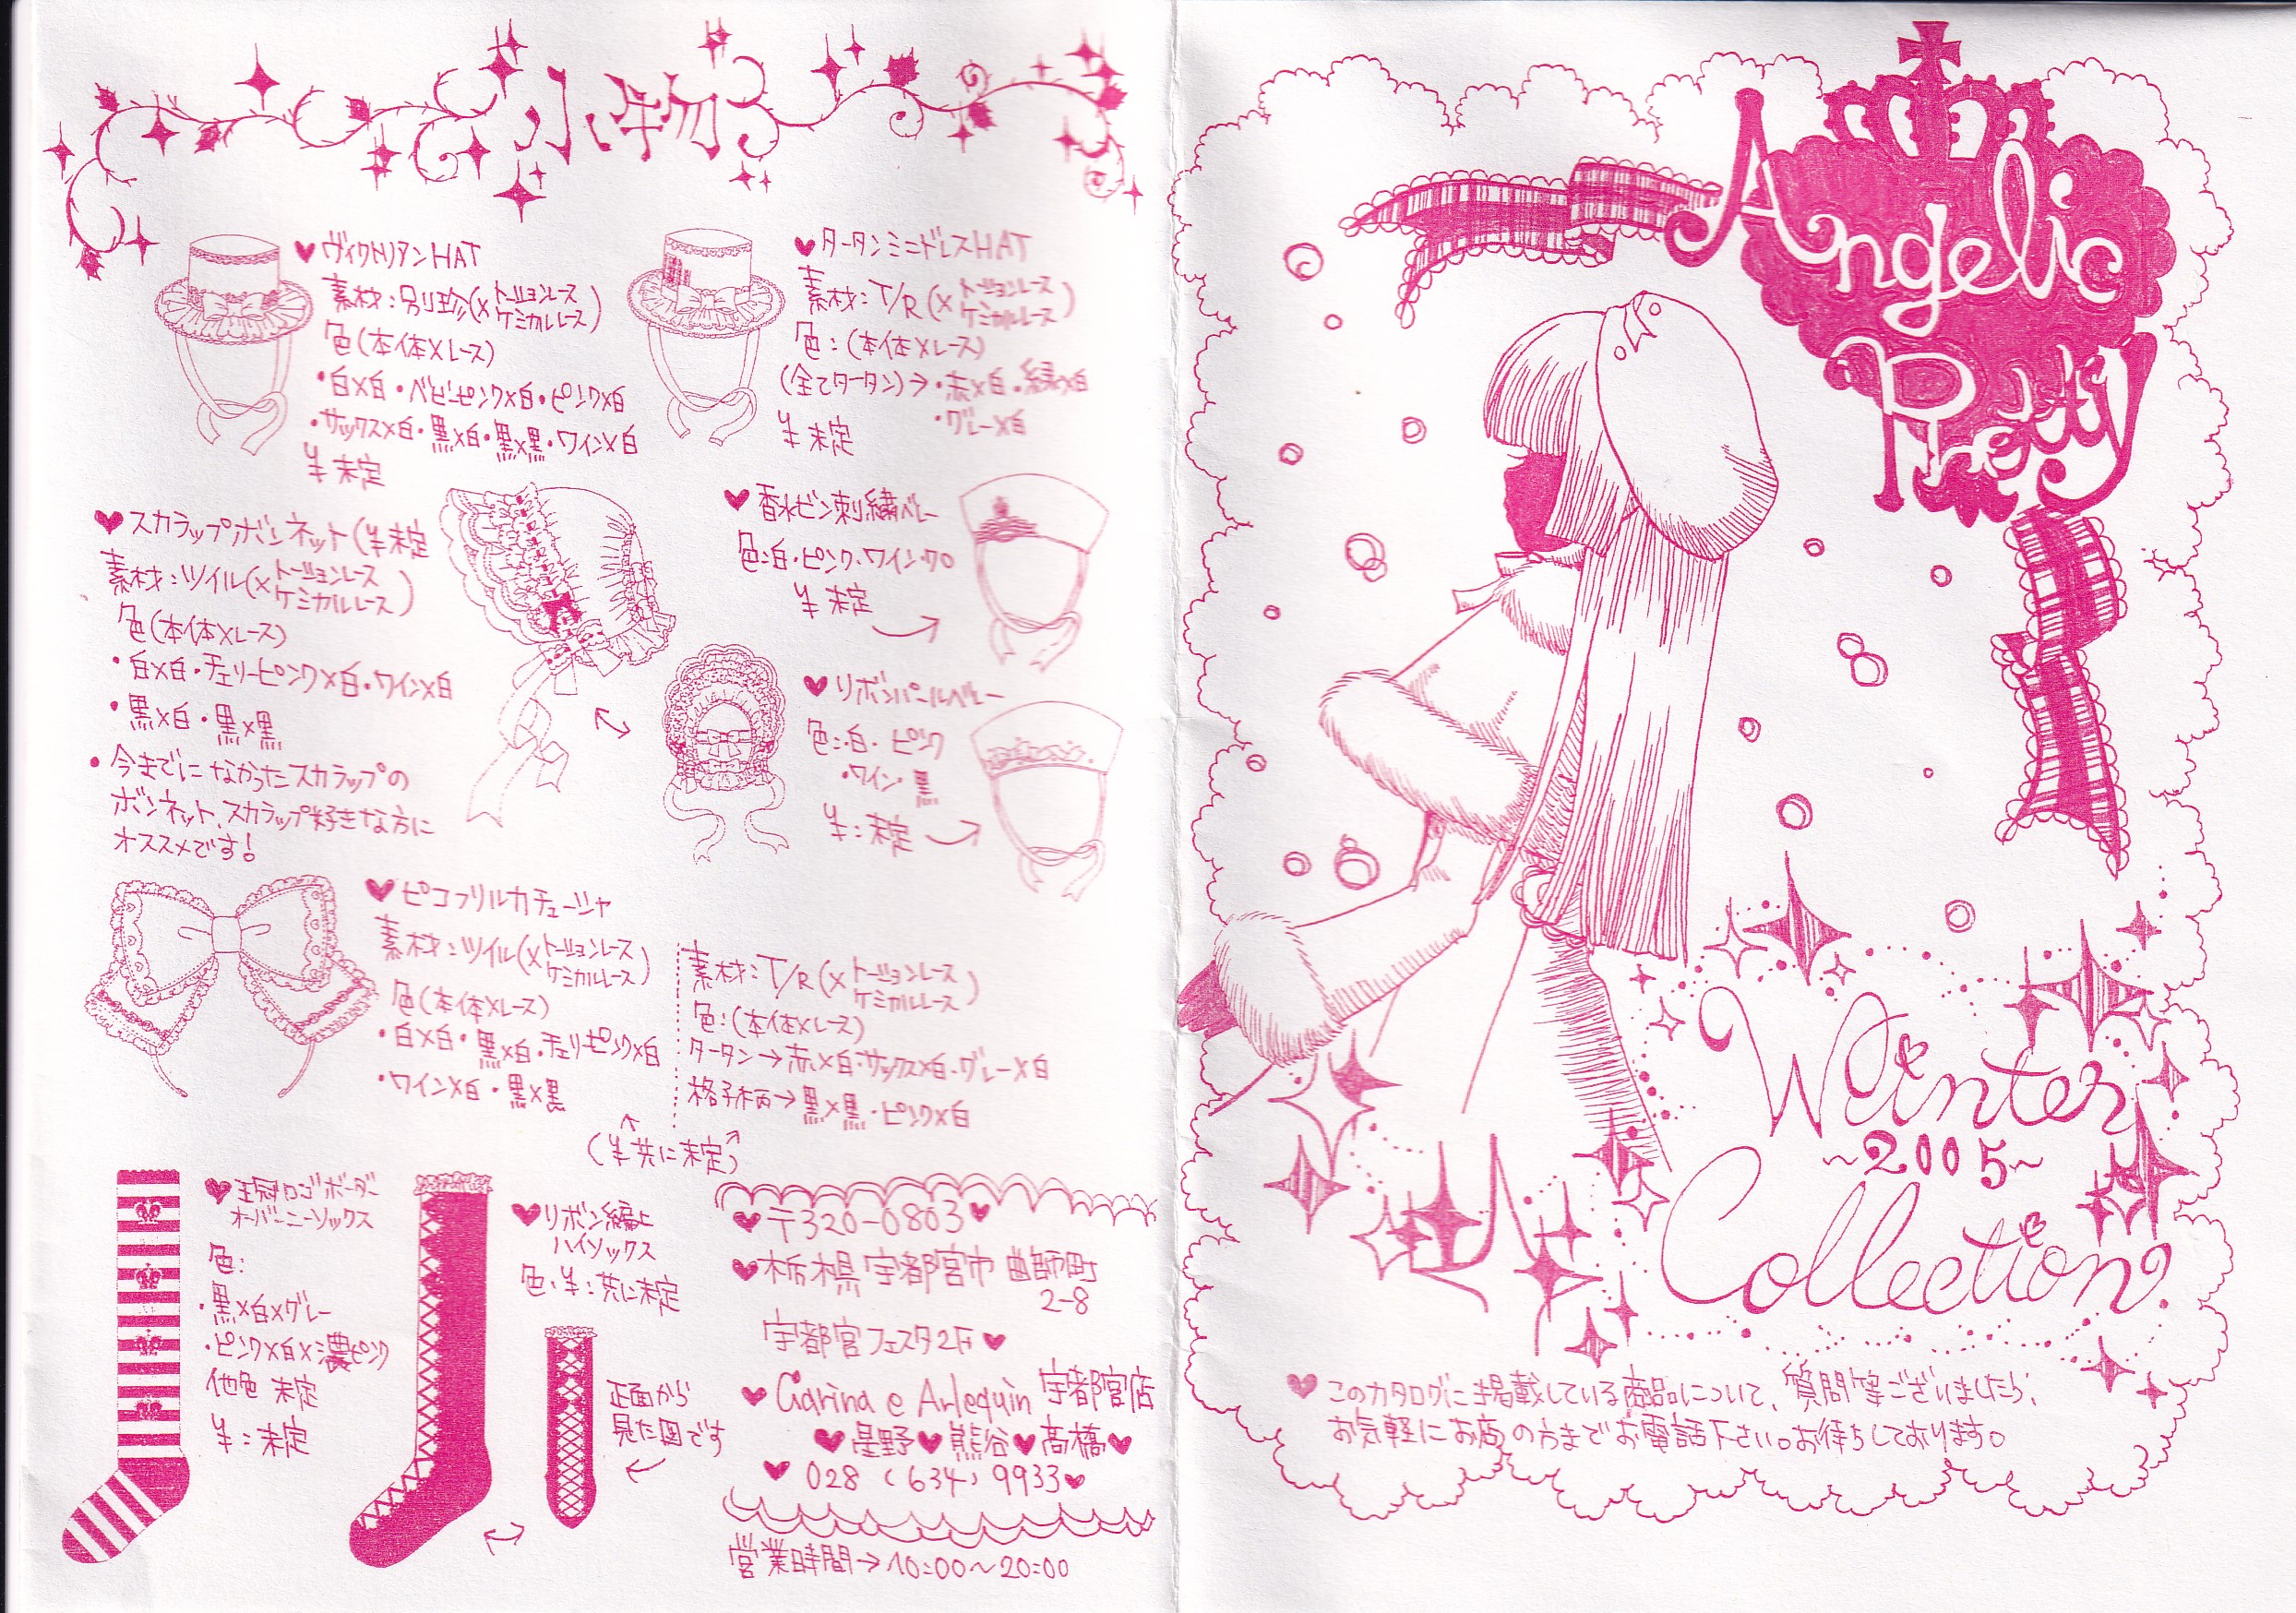 小物
♥ヴィクトリアンHAT
素材:別珍(×トーションレース
ケミカルレース)
色(本体×レース)
・白×白・ベビーピンク×白・ピンク×白
・サックス×白・黒×白・黒×黒・ワイン×白
¥未定
♥タータンミニドレスHAT
素材:T/R(×トーションレース
ケミカルレース)
色:(本体×レース)
(全てタータン)→・赤×白・緑×白
・グレー×白
¥未定
♥スカラップボンネット(¥未定
素材:ツイル(×トーションレース
ケミカルレース)
色(本体×レース)
・白×白・チェリーピンク×白・ワイン×白
・黒×白・黒×黒
・今までになかったスカラップの
ボンネット、スカラップ好きな方に
オススメです!
♥香水ビン刺繍ベレー
色:白・ピンク・ワイン・クロ
¥未定
♥リボンパールベレー
色:白・ピンク
・ワイン・黒
¥:未定
♥ピコフリルカチューシャ
素材:ツイル(×トーションレース
ケミカルレース)
色(本体×レース)
・白×白・黒×白・チェリーピンク×白
・ワイン×白・黒×黒
素材:T/R(×トーションレース
ケミカルレース)
色:(本体×レース)
タータン→赤×白・サックス×白・グレー×白
格子柄→黒×黒・ピンク×白
(¥共に未定)
♥王冠ロゴボーダー
オーバーニーソックス
色:
・黒×白×グレー
・ピンク×白×濃ピンク
他色 未定
¥:未定
♥リボン編上
ハイソックス
色・¥:共に未定
正面から
見た図です
♥〒320-0803♥
♥栃木県宇都宮市曲師町
2-8
宇都宮フェスタ2F♥
♥Carina e Arlequin 宇都宮店
♥星野♥熊谷♥高橋♥
♥028(634)9933♥
営業時間→10:00〜20:00
Angelic
Pretty
Winter
~2005~
Collection
♥このカタログに掲載している商品について、質問等ございましたら、
お気軽にお店の方までお電話下さい。お待ちしております。